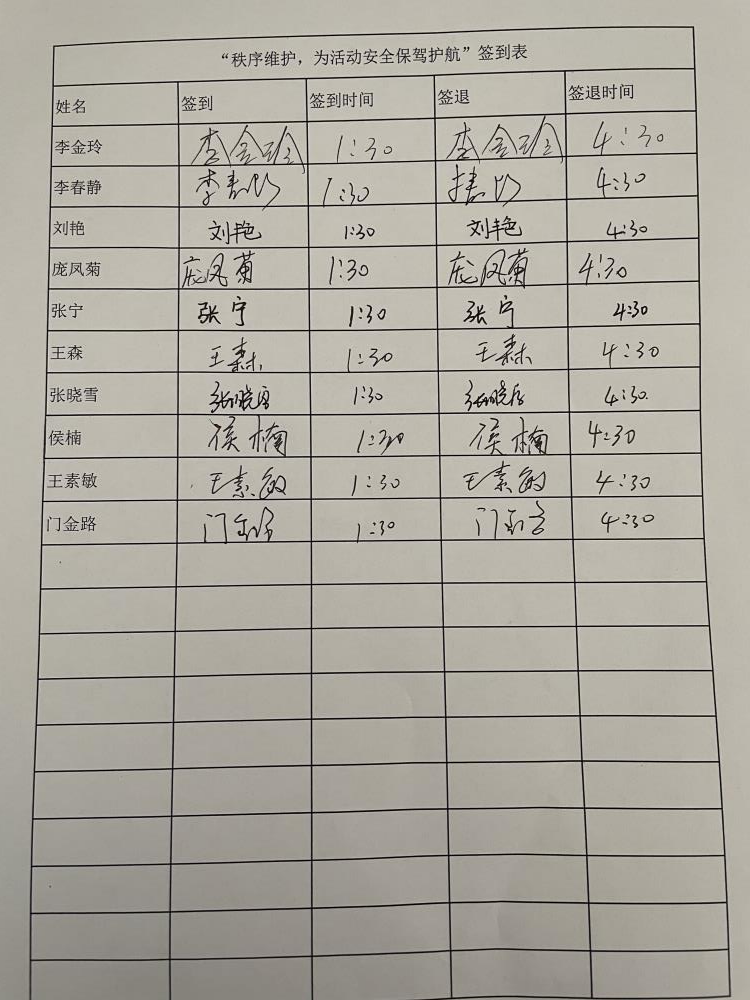 “秩序维护，为活动安全保驾护航”签到表
姓名 签到 签到时间 签退 签退时间
李金玲 李金玲 1:30 李金玲 4:30
李春静 李春静 1:30 4:30
刘艳 刘艳 1:30 刘艳 4:30
庞凤菊 庞凤菊 1:30 庞凤菊 4:30
张宁 张宁 1:30 张宁 4:30
王森 王森 1:30 王森 4:30
张晓雪 张晓雪 1:30 张晓雪 4:30
侯楠 侯楠 1:30 侯楠 4:30
王素敏 王素敏 1:30 王素敏 4:30
门金路 门金路 1:30 门金路 4:30